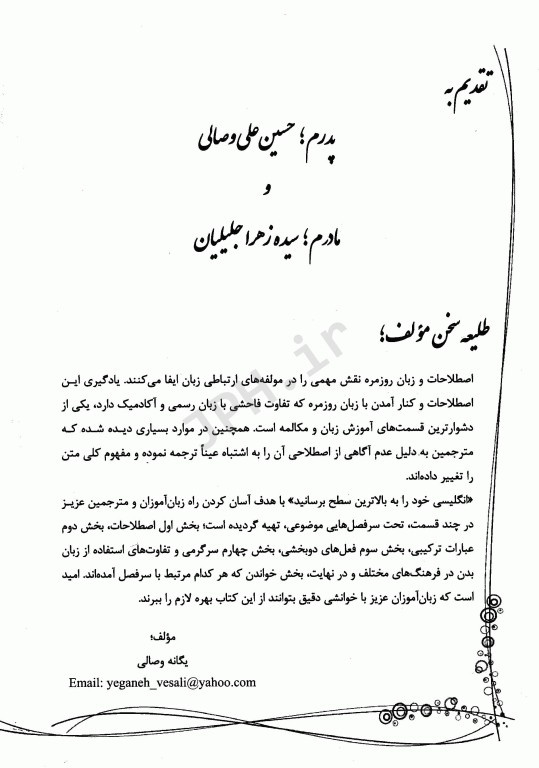 تقدیم به
پدرم؛ حسین علی وصالی
و
مادرم؛ سیده زهرا جلیلیان
طلیعه سخن مؤلف؛
اصطلاحات و زبان روزمره نقش مهمی را در مولفه‌های ارتباطی زبان ایفا می‌کنند. یادگیری این
اصطلاحات و کنار آمدن با زبان روزمره که تفاوت فاحشی با زبان رسمی و آکادمیک دارد، یکی از
دشوارترین قسمت‌های آموزش زبان و مکالمه است. همچنین در موارد بسیاری دیده شده که
مترجمین به دلیل عدم آگاهی از اصطلاحی آن را به اشتباه عیناً ترجمه نموده و مفهوم کلی متن
را تغییر داده‌اند.
«انگلیسی خود را به بالاترین سطح برسانید» با هدف آسان کردن راه زبان‌آموزان و مترجمین عزیز
در چند قسمت، تحت سرفصل‌هایی موضوعی، تهیه گردیده است؛ بخش اول اصطلاحات، بخش دوم
عبارات ترکیبی، بخش سوم فعل‌های دوبخشی، بخش چهارم سرگرمی و تفاوت‌های استفاده از زبان
بدن در فرهنگ‌های مختلف و در نهایت، بخش خواندن که هر کدام مرتبط با سرفصل آمده‌اند. امید
است که زبان‌آموزان عزیز با خوانشی دقیق بتوانند از این کتاب بهره لازم را ببرند.
مؤلف؛
یگانه وصالی
Email: yeganeh_vesali@yahoo.com